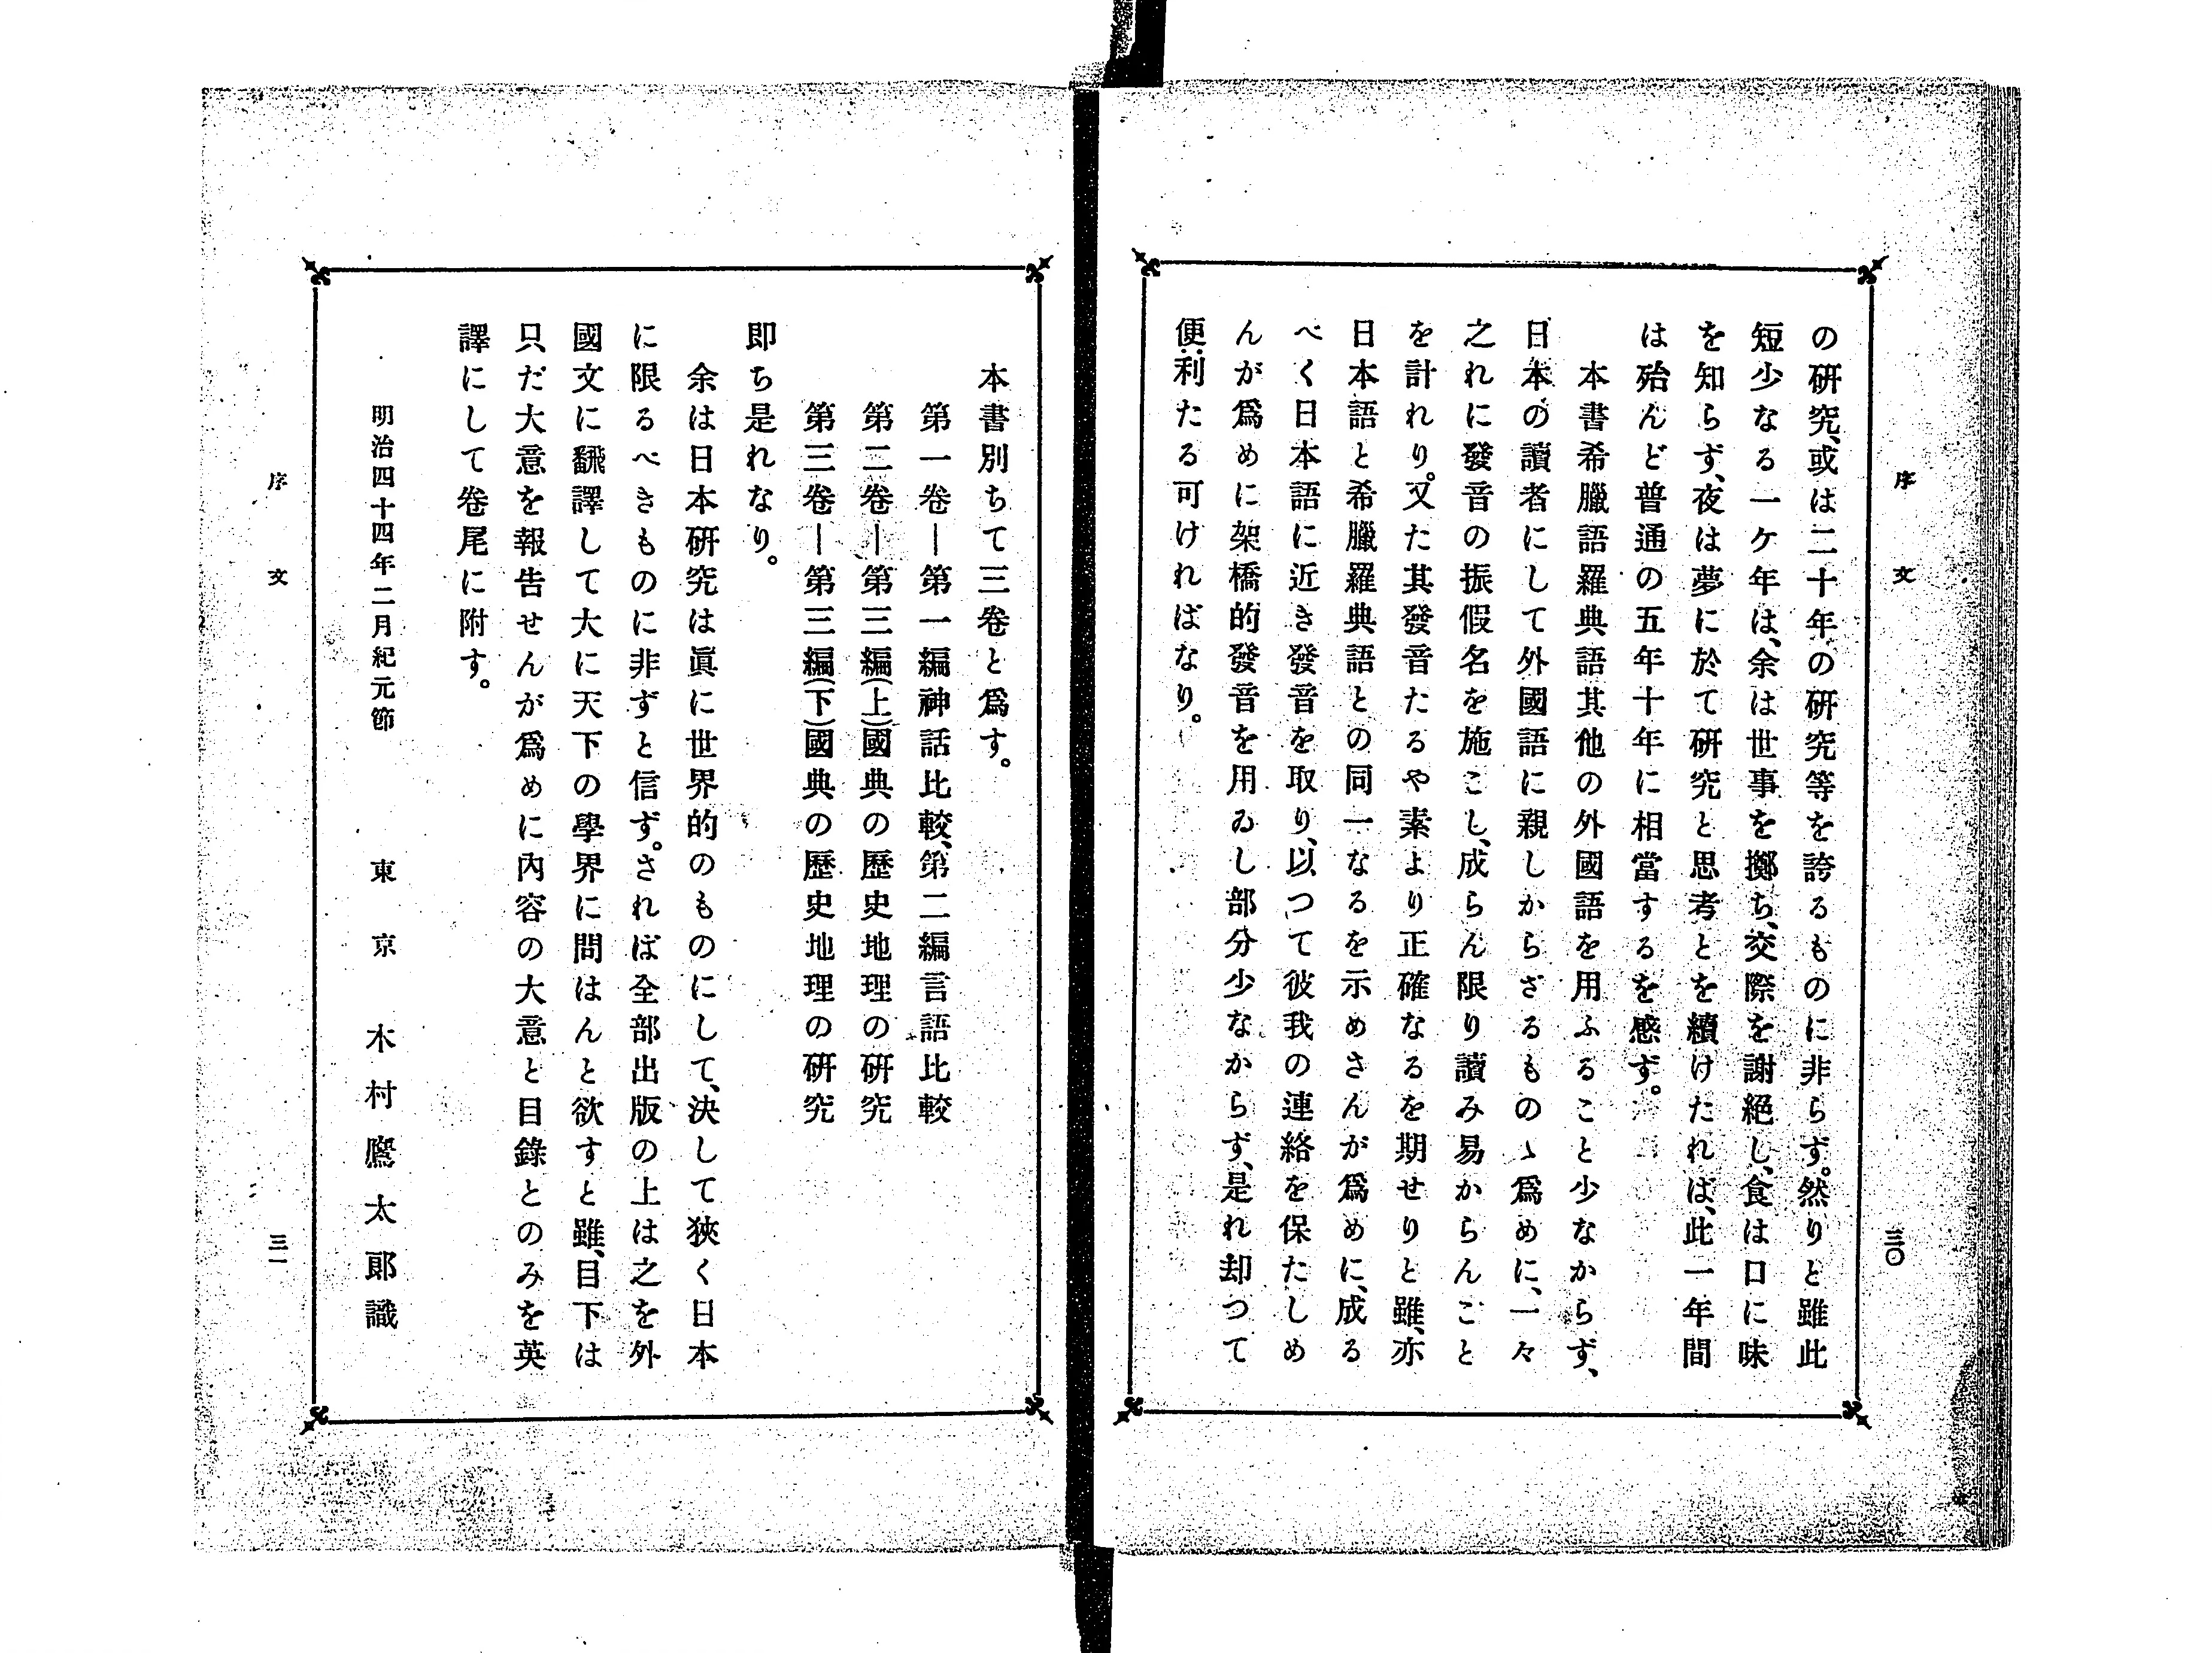 序文
三〇
の研究、或は二十年の研究等を誇るものに非らず。然りと雖此
短少なる一ケ年は、余は世事を擲ち、交際を謝絕し、食は口に味
を知らず、夜は夢に於て研究と思考とを續けたれば、此一年間
は殆んど普通の五年十年に相當するを感ず。
本書希臘語羅典語其他の外國語を用ふること少なからず、
日本の讀者にして外國語に親しからざるものゝ爲めに、一々
之れに發音の振假名を施こし、成らん限り讀み易からんこと
を計れり。又た其發音たるや素より正確なるを期せりと雖、亦
日本語と希臘羅典語との同一なるを示めさんが爲めに、成る
べく日本語に近き發音を取り、以つて彼我の連絡を保たしめ
んが爲めに架橋的發音を用ゐし部分少なからず、是れ却つて
便利たる可ければなり。
本書別ちて三卷と爲す。
第一卷―第一編神話比較、第二編言語比較
第二卷―第三編(上)國典の歷史地理の研究
第三卷―第三編(下)國典の歷史地理の研究
即ち是れなり。
余は日本研究は眞に世界的のものにして、決して狹く日本
に限るべきものに非ずと信ず。されば全部出版の上は之を外
國文に飜譯して大に天下の學界に問はんと欲すと雖、目下は
只だ大意を報告せんが爲めに內容の大意と目錄とのみを英
譯にして卷尾に附す。
明治四十四年二月紀元節
東京 木村鷹太郞識
序文
三一